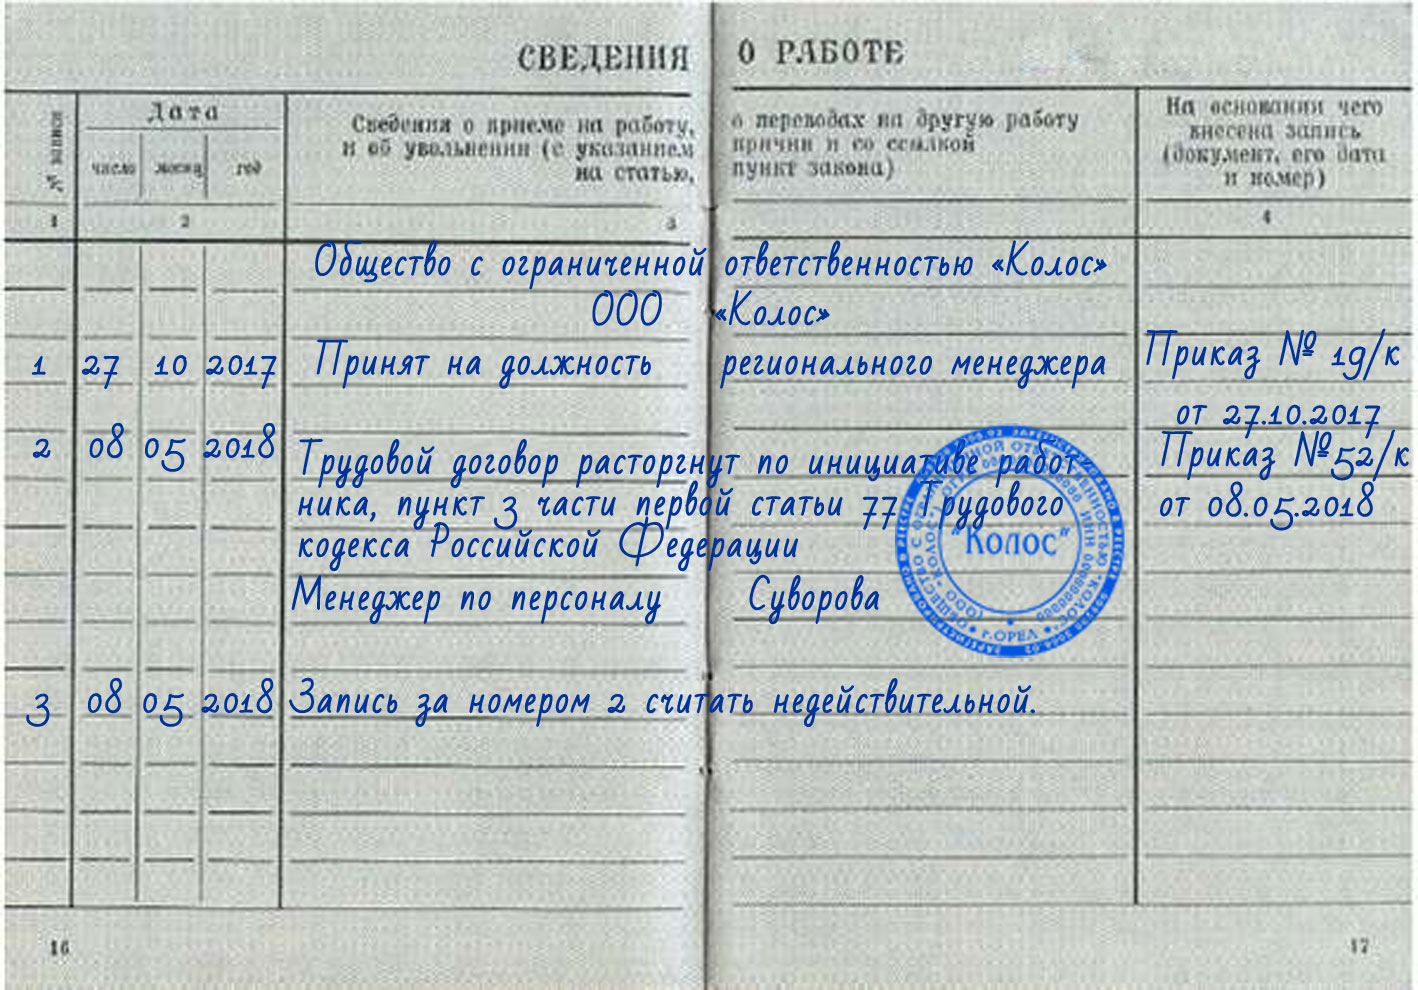 СВЕДЕНИЯ О РАБОТЕ
№ записи
Дата
число месяц год
Сведения о приеме на работу, о переводах на другую работу
и об увольнении (с указанием причин и со ссылкой
на статью, пункт закона)
На основании чего
внесена запись
(документ, его дата
и номер)
1 2 3 4
Общество с ограниченной ответственностью «Колос»
ООО «Колос»
1 27 10 2017 Принят на должность регионального менеджера Приказ № 19/к
от 27.10.2017
2 08 05 2018 Трудовой договор расторгнут по инициативе работ- Приказ №52/к
ника, пункт 3 части первой статьи 77 Трудового от 08.05.2018
кодекса Российской Федерации
Менеджер по персоналу Суворова
"Колос"
г.ОРЕЛ
3 08 05 2018 Запись за номером 2 считать недействительной.
16 17